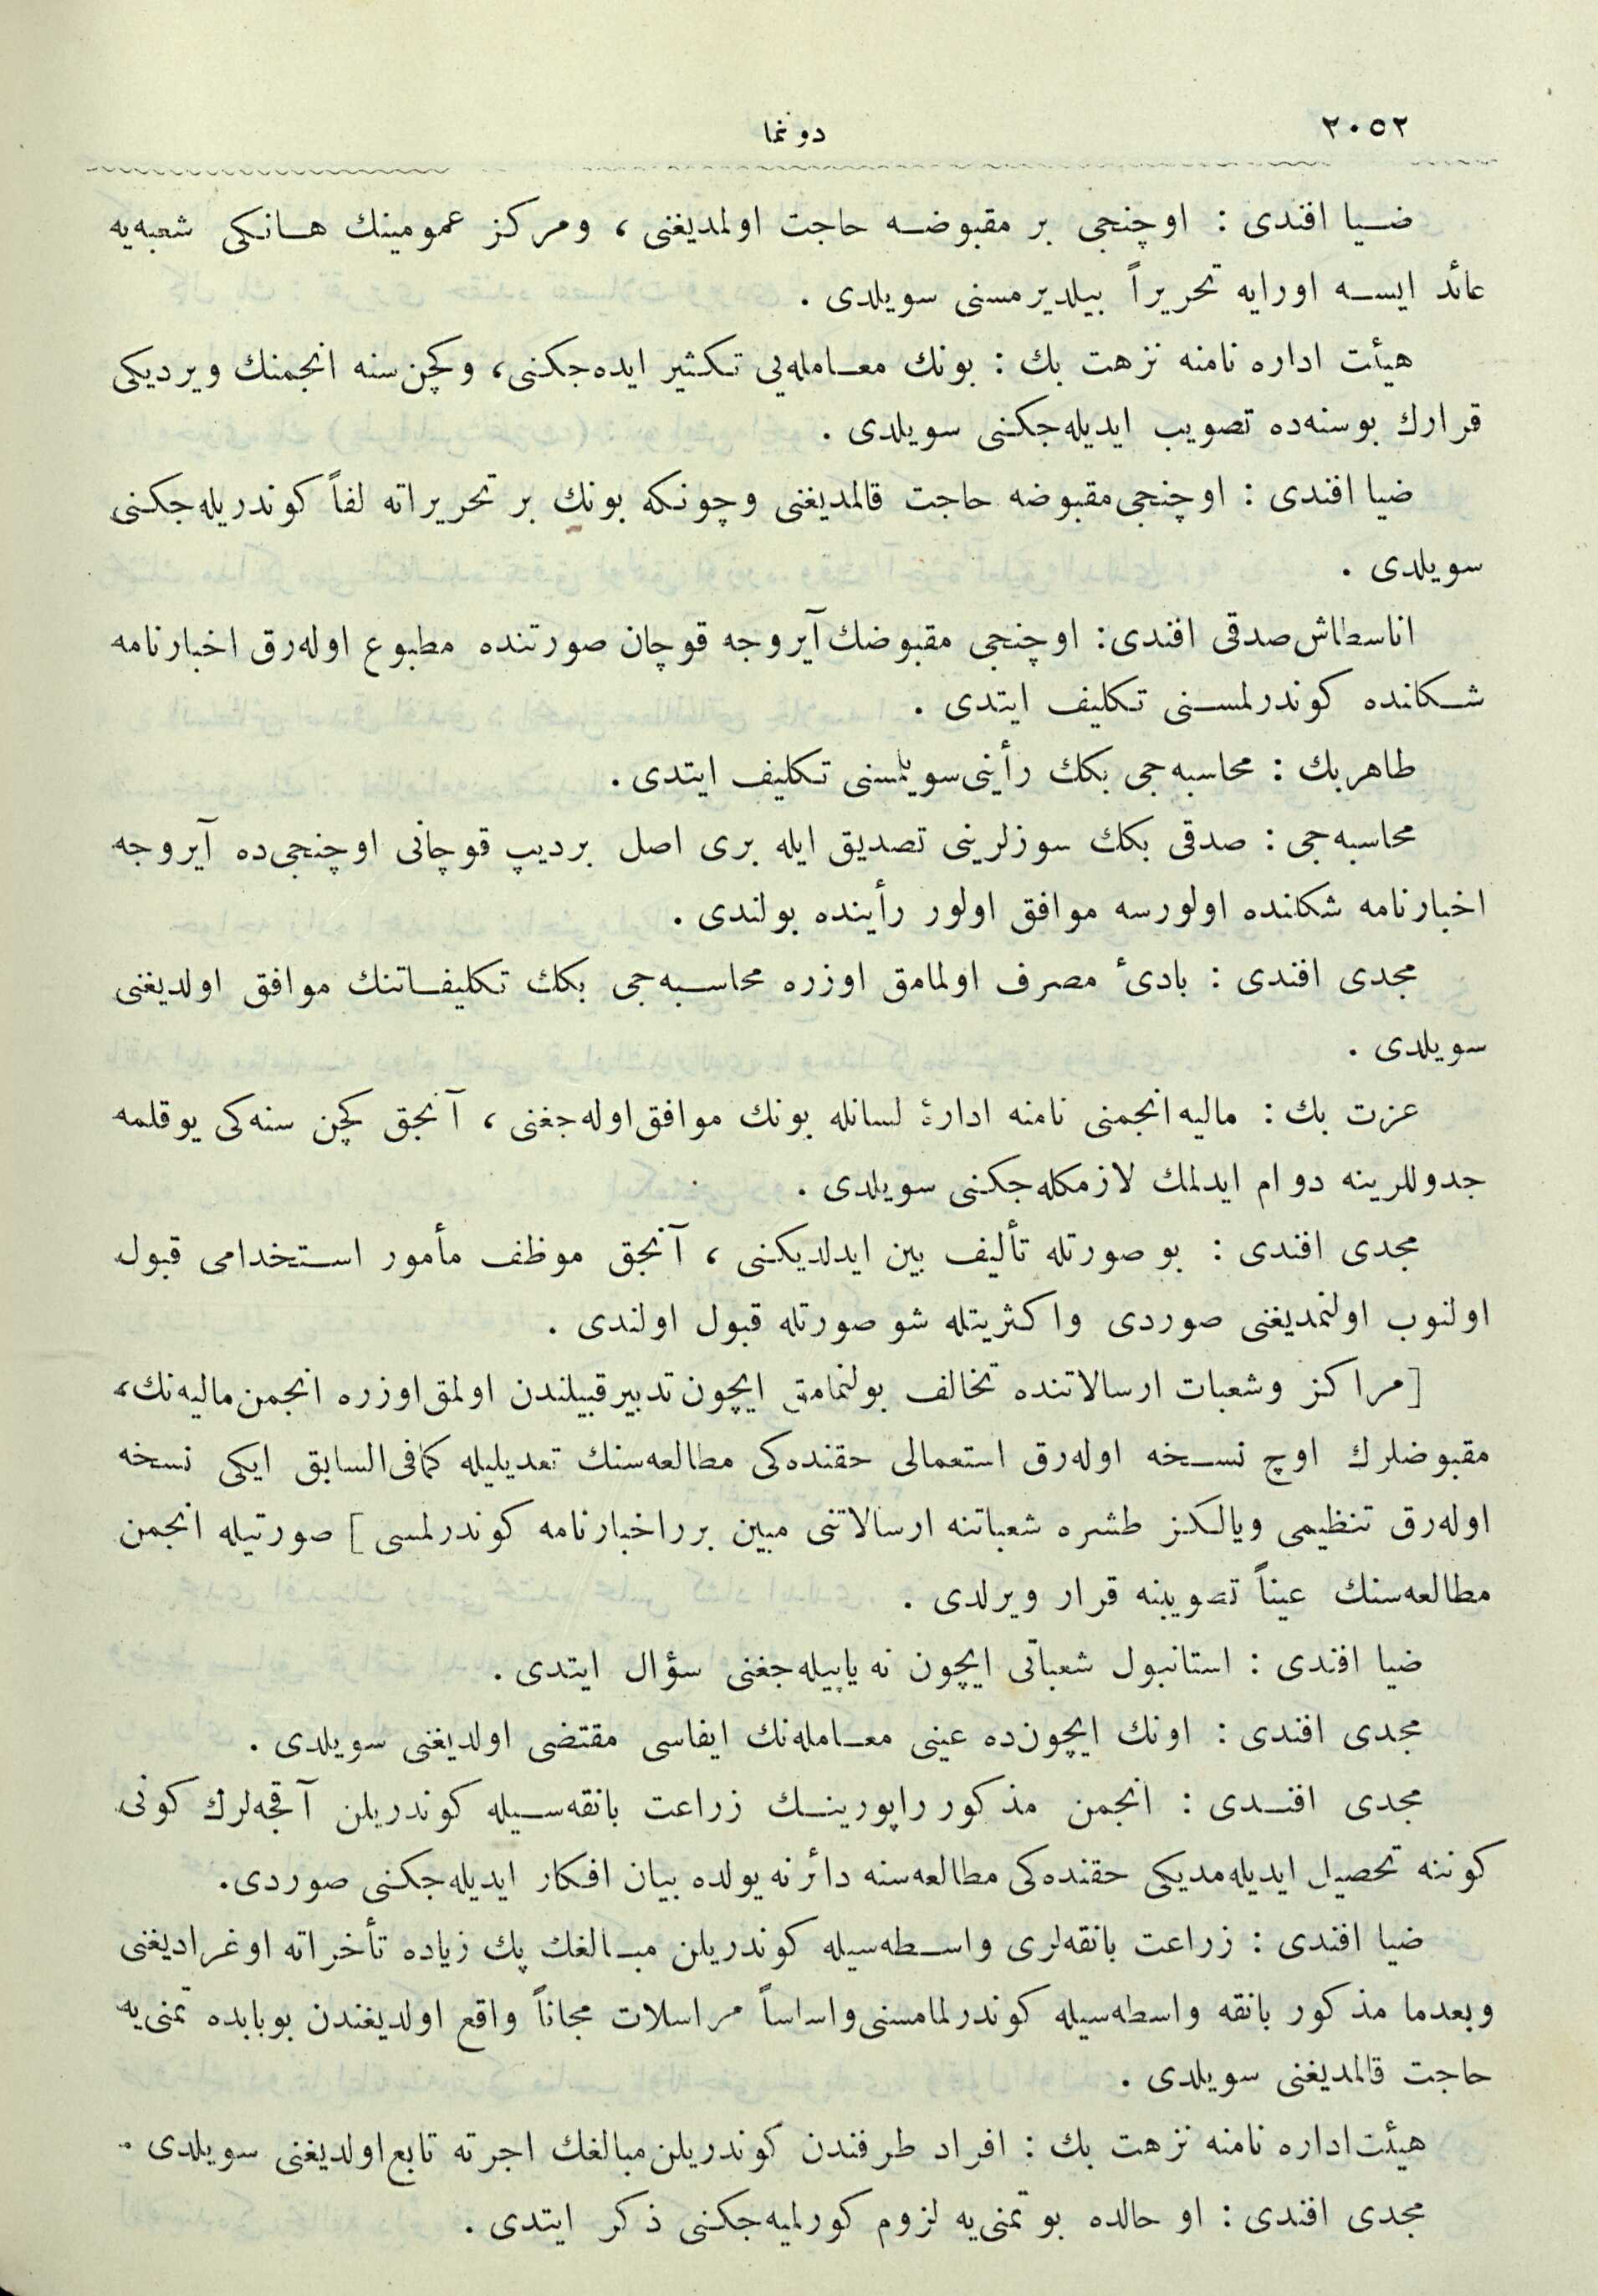 ٢٠٥٢
دونما
ضيا افندى : اوچنجى بر مقبوضه حاجت اولمديغنى ، ومركز عموم‌ينك هانكى شعبه‌يه
عائد ايسه اورايه تحريراً بيلديرمسنى سويلدى .
هيئت اداره نامنه نزهت بك : بونك معامله‌يى تكثير ايده‌جكنى، وكچن سنه انجمنك ويرديكى
قرارك بوسنه‌ده تصويب ايديله‌جكنى سويلدى .
ضيا افندى : اوچنجى مقبوضه حاجت قالمديغنى وچونكه بونك بر تحريراته لفاً كوندريله‌جكنى
سويلدى .
اناسطاش صدقى افندى : اوچنجى مقبوضك آيروجه قوچان صورتنده مطبوع اوله‌رق اخبارنامه
شكلنده كوندرلمسنى تكليف ايتدى .
طاهر بك : محاسبه‌جى بكك رأينى سويلمسنى تكليف ايتدى .
محاسبه‌جى : صدقى بكك سوزلرينى تصديق ايله برى اصل برديپ قوچانى اوچنجى‌ده آيروجه
اخبارنامه شكلنده اولورسه موافق اولور رأينده بولندى .
مجدى افندى : بادئ مصرف اولمامق اوزره محاسبه‌جى بكك تكليفاتنك موافق اولديغنى
سويلدى .
عزت بك : ماليه انجمنى نامنه ادارۀ لسانله بونك موافق اوله‌جغنى ، آنجق كچن سنه‌كى يوقلمه
جدوللرينه دوام ايدلمك لازمكله‌جكنى سويلدى .
مجدى افندى : بو صورتله تأليف بين ايدلديكنى ، آنجق موظف مأمور استخدامى قبول
اولنوب اولنمديغنى صوردى واكثريتله شو صورتله قبول اولندى .
[مراكز وشعبات ارسالاتنده تخالف بولنمامق ايچون تدبير قبيلندن اولمق اوزره انجمن ماليه‌نك،
مقبوضلرك اوچ نسخه اوله‌رق استعمالى حقنده‌كى مطالعه‌سنك تعديليله كمافى‌السابق ايكى نسخه
اوله‌رق تنظيمى ويالكز طشره شعباتنه ارسالاتنى مبين برر اخبارنامه كوندرلمسى] صورتيله انجمن
مطالعه‌سنك عيناً تصويبنه قرار ويرلدى .
ضيا افندى : استانبول شعباتى ايچون نه ياپيله‌جغنى سؤال ايتدى .
مجدى افندى : اونك ايچون‌ده عينى معامله‌نك ايفاسى مقتضى اولديغنى سويلدى .
مجدى افندى : انجمن مذكور راپورينك زراعت بانقه‌سيله كوندريلن آقچه‌لرك كونى
كوننه تحصيل ايديله‌مديكى حقنده‌كى مطالعه‌سنه دائر نه يولده بيان افكار ايديله‌جكنى صوردى.
ضيا افندى : زراعت بانقه‌لرى واسطه‌سيله كوندريلن مبالغك پك زياده تأخراته اوغراديغنى
وبعدما مذكور بانقه واسطه‌سيله كوندرلمامسنى واساساً مراسلات مجاناً واقع اولديغندن بوبابده تمنى‌يه
حاجت قالمديغنى سويلدى .
هيئت اداره نامنه نزهت بك : افراد طرفندن كوندريلن مبالغك اجرته تابع اولديغنى سويلدى .
مجدى افندى : او حالده بو تمنى‌يه لزوم كورلميه‌جكنى ذكر ايتدى .